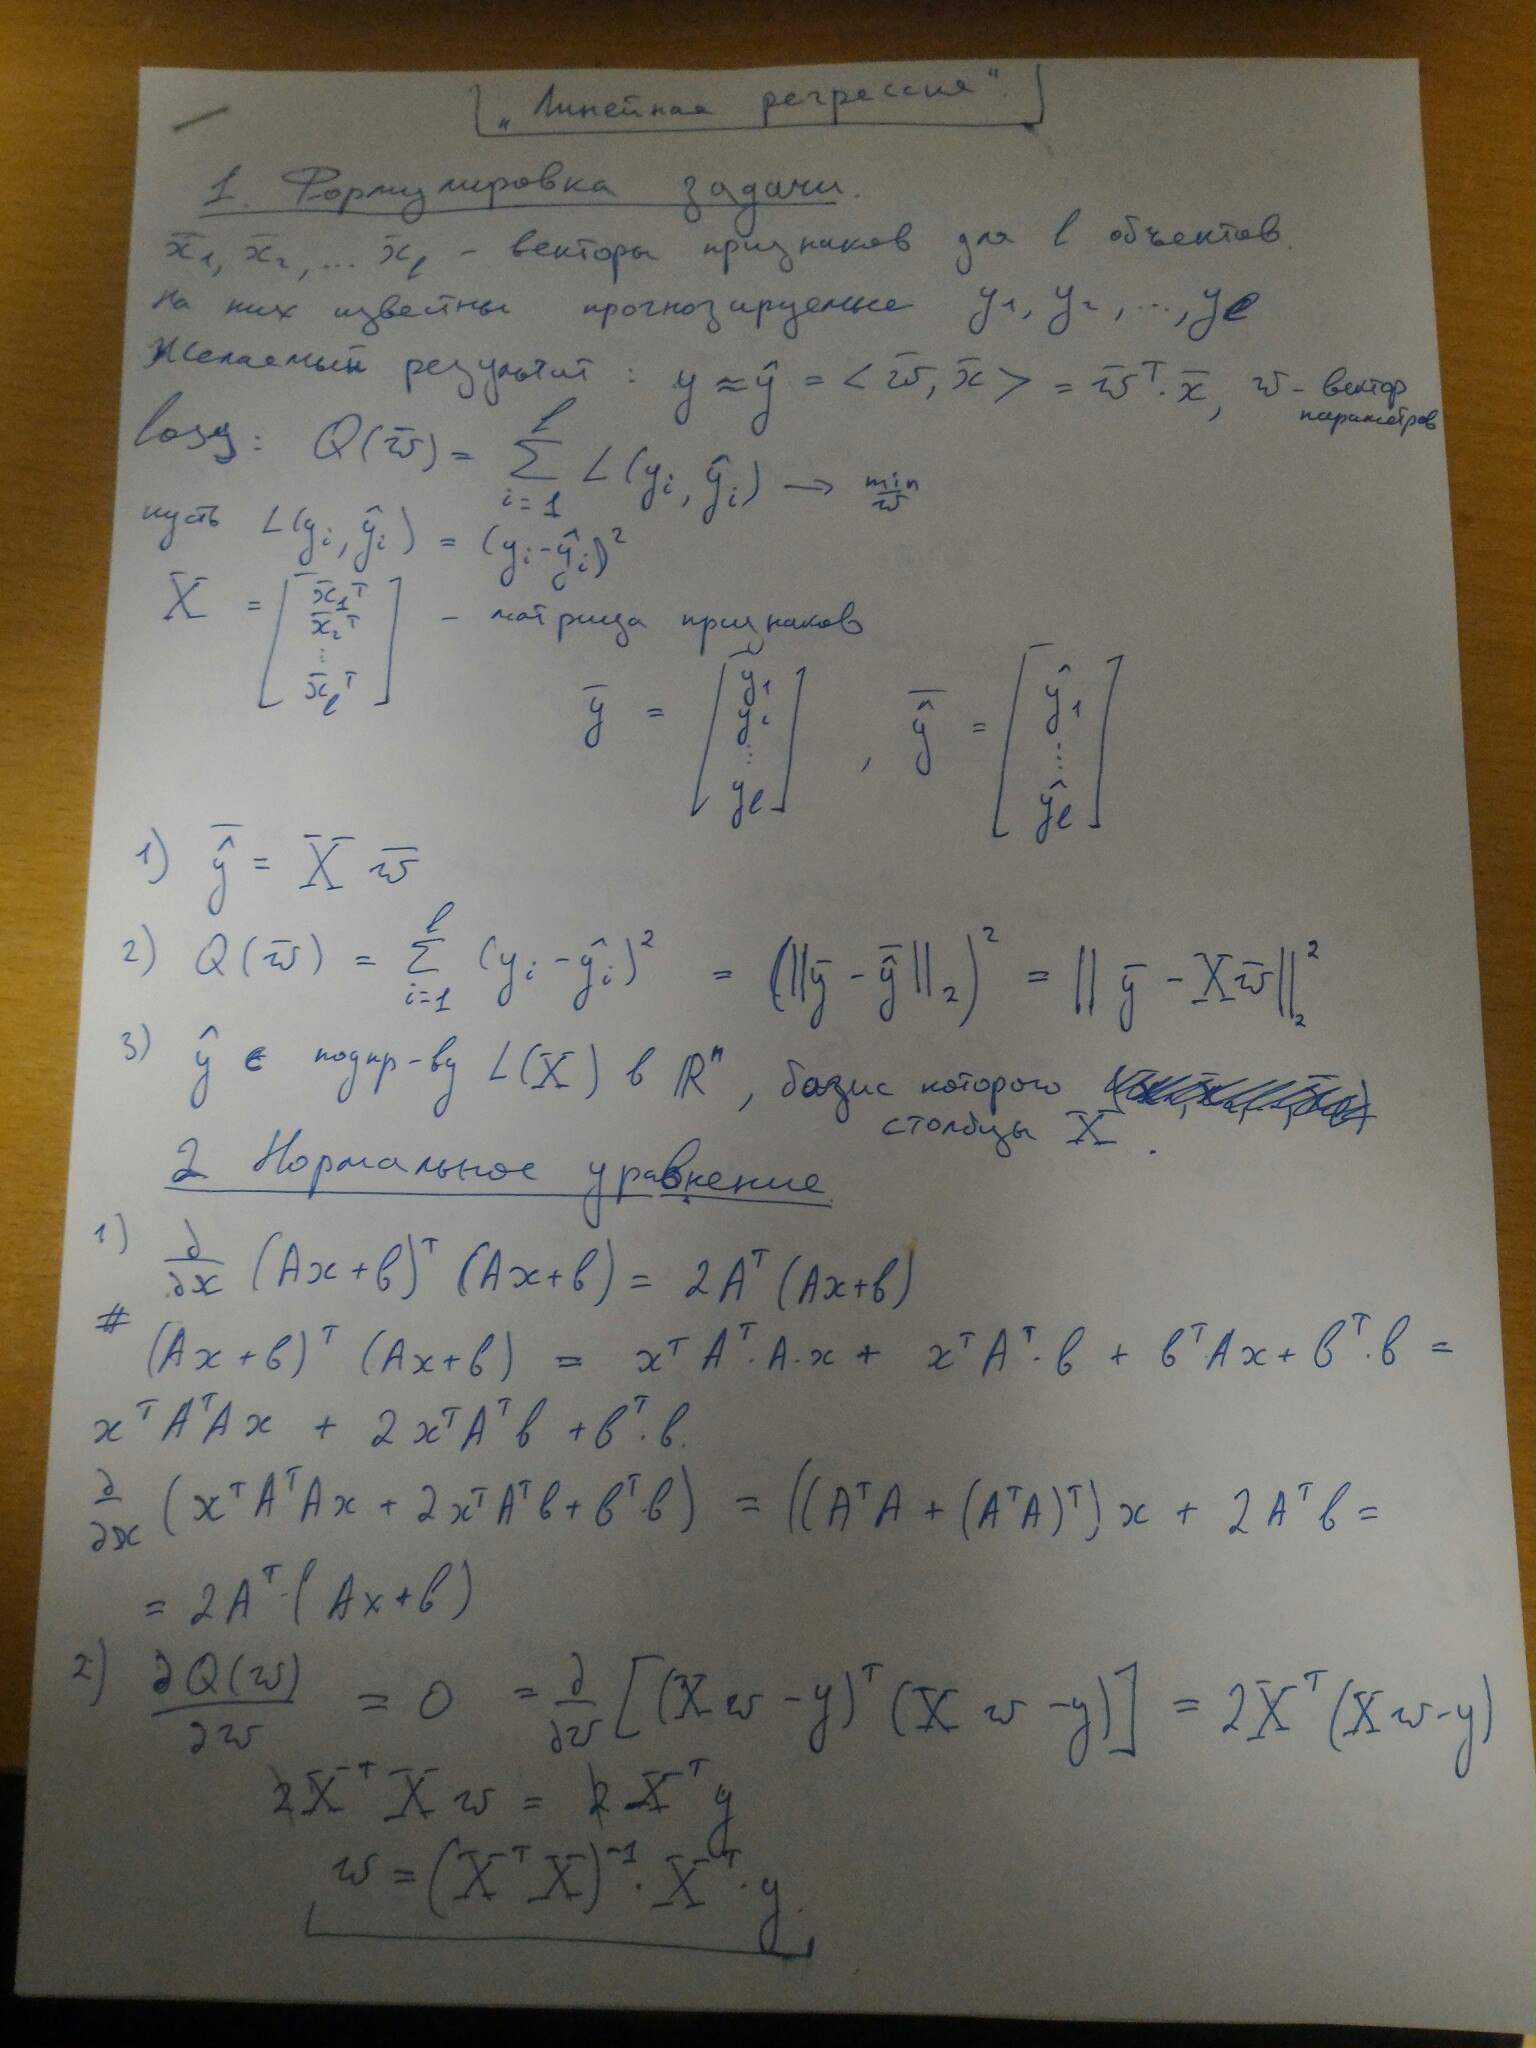 „Линейная регрессия“.
1. Формулировка задачи.
x̄₁, x̄₂, ... x̄ₗ – векторы признаков для l объектов.
На них известны прогнозируемые y₁, y₂, ..., yₗ
Желаемый результат: y ≈ ŷ = <w̄, x̄> = w̄ᵀ·x̄, w – вектор параметров
loss: Q(w̄) = Σ_{i=1}^{l} L(yᵢ, ŷᵢ) → min_w̄
пусть L(yᵢ, ŷᵢ) = (yᵢ - ŷᵢ)²
X = [x̄₁ᵀ x̄₂ᵀ ⋮ x̄ₗᵀ] – матрица признаков
ȳ = [y₁ y₂ ... yₗ], ŷ̄ = [ŷ₁ ... ŷₗ]
1) ŷ̄ = X w̄
2) Q(w̄) = Σ_{i=1}^{l} (yᵢ - ŷᵢ)² = (||ȳ - ŷ̄||₂)² = ||ȳ - Xw̄||₂²
3) ŷ ∈ подпр-ву L(X) в ℝⁿ, базис которого
столбцы X.
2 Нормальное уравнение.
1) ∂/∂x (Ax+b)ᵀ (Ax+b) = 2Aᵀ (Ax+b)
# (Ax+b)ᵀ (Ax+b) = xᵀAᵀ·A·x + xᵀAᵀ·b + bᵀAx + bᵀ·b =
xᵀAᵀAx + 2xᵀAᵀb + bᵀ·b.
∂/∂x (xᵀAᵀAx + 2xᵀAᵀb + bᵀb) = ((AᵀA + (AᵀA)ᵀ) x + 2Aᵀb =
= 2Aᵀ·(Ax+b)
2) ∂Q(w)/∂w = 0 = ∂/∂w [(Xw - y)ᵀ (Xw - y)] = 2Xᵀ(Xw-y)
2XᵀXw = 2Xᵀy
w = (XᵀX)⁻¹·Xᵀ·y.